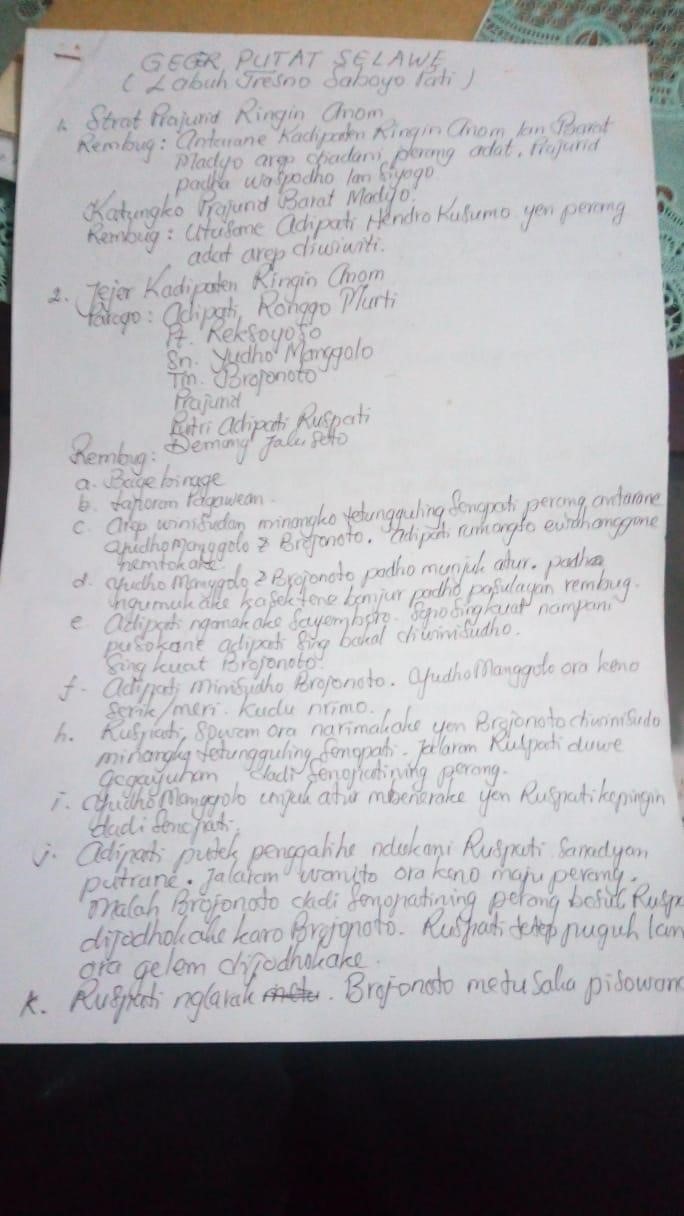 1
GEGER PUTAT SELAWE
( Labuh Tresno Saboyo Pati )
1. Strat Prajurid Ringin Anom
Rembug : Antarane Kadipaten Ringin Anom lan Barat
Madyo arep dhadani perang adat. Prajurid
padha waspodho lan siyogo
Katungko Prajurid Barat Madyo.
Rembug : Utusane Adipati Hendro Kusumo yen perang
adat arep diwiwiti.
2. Jejer Kadipaten Ringin Anom
Parogo : Adipati Ronggo Murti
Pt. Reksoyoso
Sn. Yudho Manggolo
Tm. Brojonoto
Prajurid
Putri Adipati Ruspati
Demang Jalu Seto
Rembug :
a. Bage binage
b. Laporan Pagawean.
c. Arep winisudan minangko tetungguling Senopati perang antarane
Yudho Manggolo & Brojonoto. Adipati rumongso ewdhanggone
nemtokake.
d. Yudho Manggolo & Brojonoto podho munjuk atur. padha
ngumukake kasektene banjur padho pasulayan rembug.
e. Adipati nganakake Sayemboro. Sopo Sing kuat nampani
pusokane adipati Sing bakal diwinisudho.
Sing kuat Brojonoto.
f. Adipati minisudho Brojonoto. Yudho Manggolo ora keno
serik/meri. Kudu nrimo.
h. Ruspati, ora narimakake yen Brojonoto diwinisudo
minangka tetungguling Senopati. Jalaran Ruspati duwe
gegayuhan dadi Senopatining perang.
i. Yudho Manggolo unjuk atur mbenerake yen Ruspati kepingin
dadi Senopati.
j. Adipati putek penggalihe ndukani Ruspati Sanadyan
putrane. Jalaran wanito ora keno maju perang.
Malah Brojonoto dadi Senopatining perang bakal Ruspa
dijodhokake karo Brojonoto. Ruspati tetep puguh lan
ora gelem dijodhokake.
k. Ruspati nglarak. Brojonoto metu saka pisowana